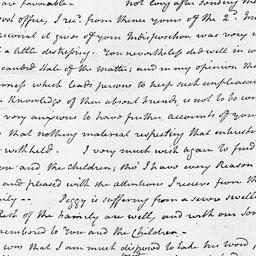 are favorable - Not long after sending the
post office, I rec'd from there yours of the 2d. In
account it gives of your Indisposition was very u
a little distressing. You nevertheless did well in w
candid state of the matter; and in my opinion th
ness which leads persons to keep such unpleasan
knowledge of their absent friends, is not to be co
very anxious to have further accounts of you
that nothing material respecting that interest
withheld. I very much wish again to find
you and the children; tho' I have every Reason
and pleased with the attentions I receive from th
ily - Peggy is suffering from a severe swell
Rest of the family are well, and with our Son
remembered to You and the Children -
was that I am much disposed to take his word f